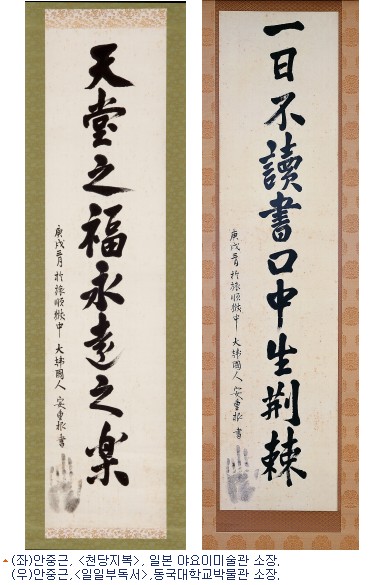 天堂之福永遠之楽
庚戌三月 於旅順獄中 大韓國人 安重根 書
一日不讀書口中生荊棘
庚戌三月 於旅順獄中 大韓國人 安重根 書
(좌)안중근, <천당지복>, 일본 야요이미술관 소장.
(우)안중근,<일일부독서>,동국대학교박물관 소장.